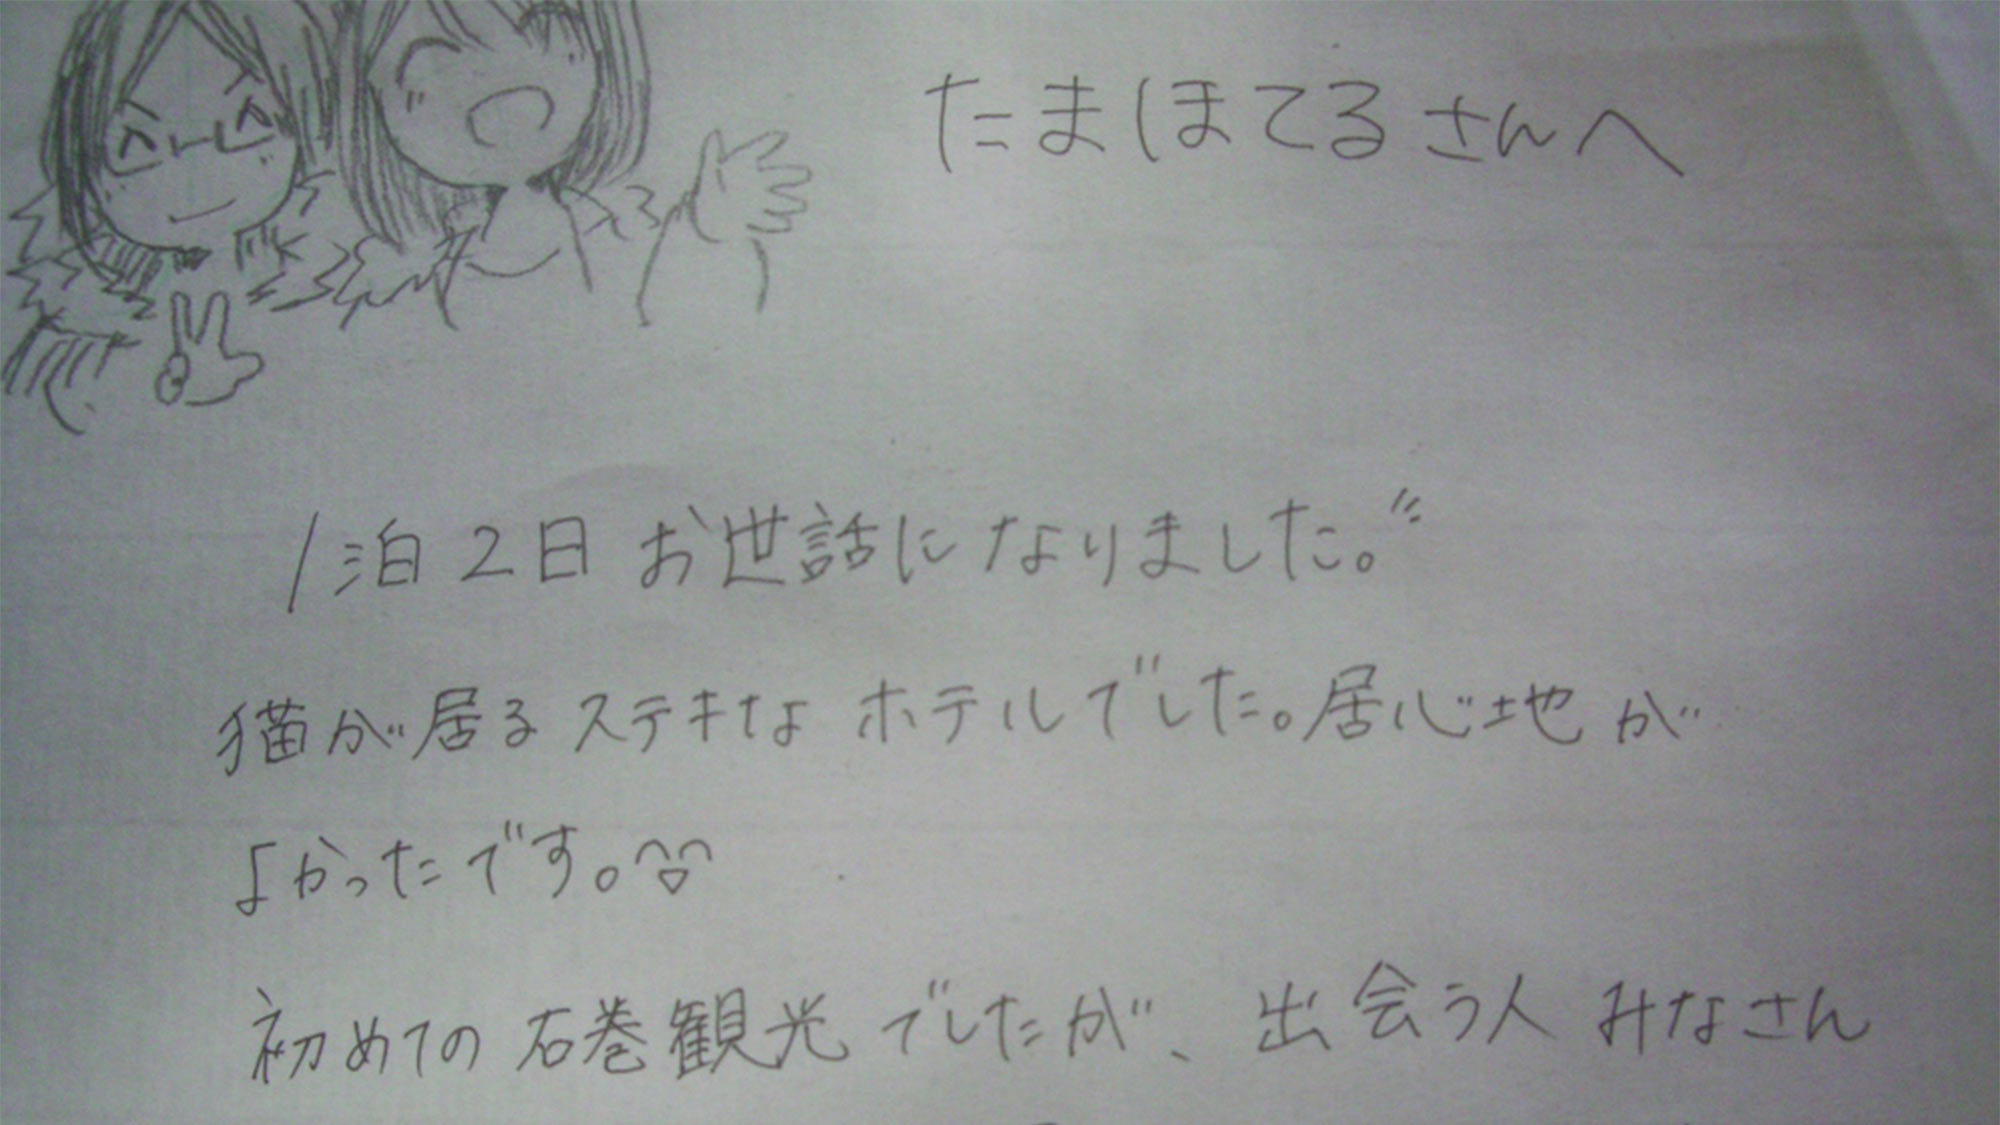 たまほてるさんへ
1泊2日お世話になりました。
猫が居るステキなホテルでした。居心地が
よかったです。
初めての石巻観光でしたが、出会う人みなさん